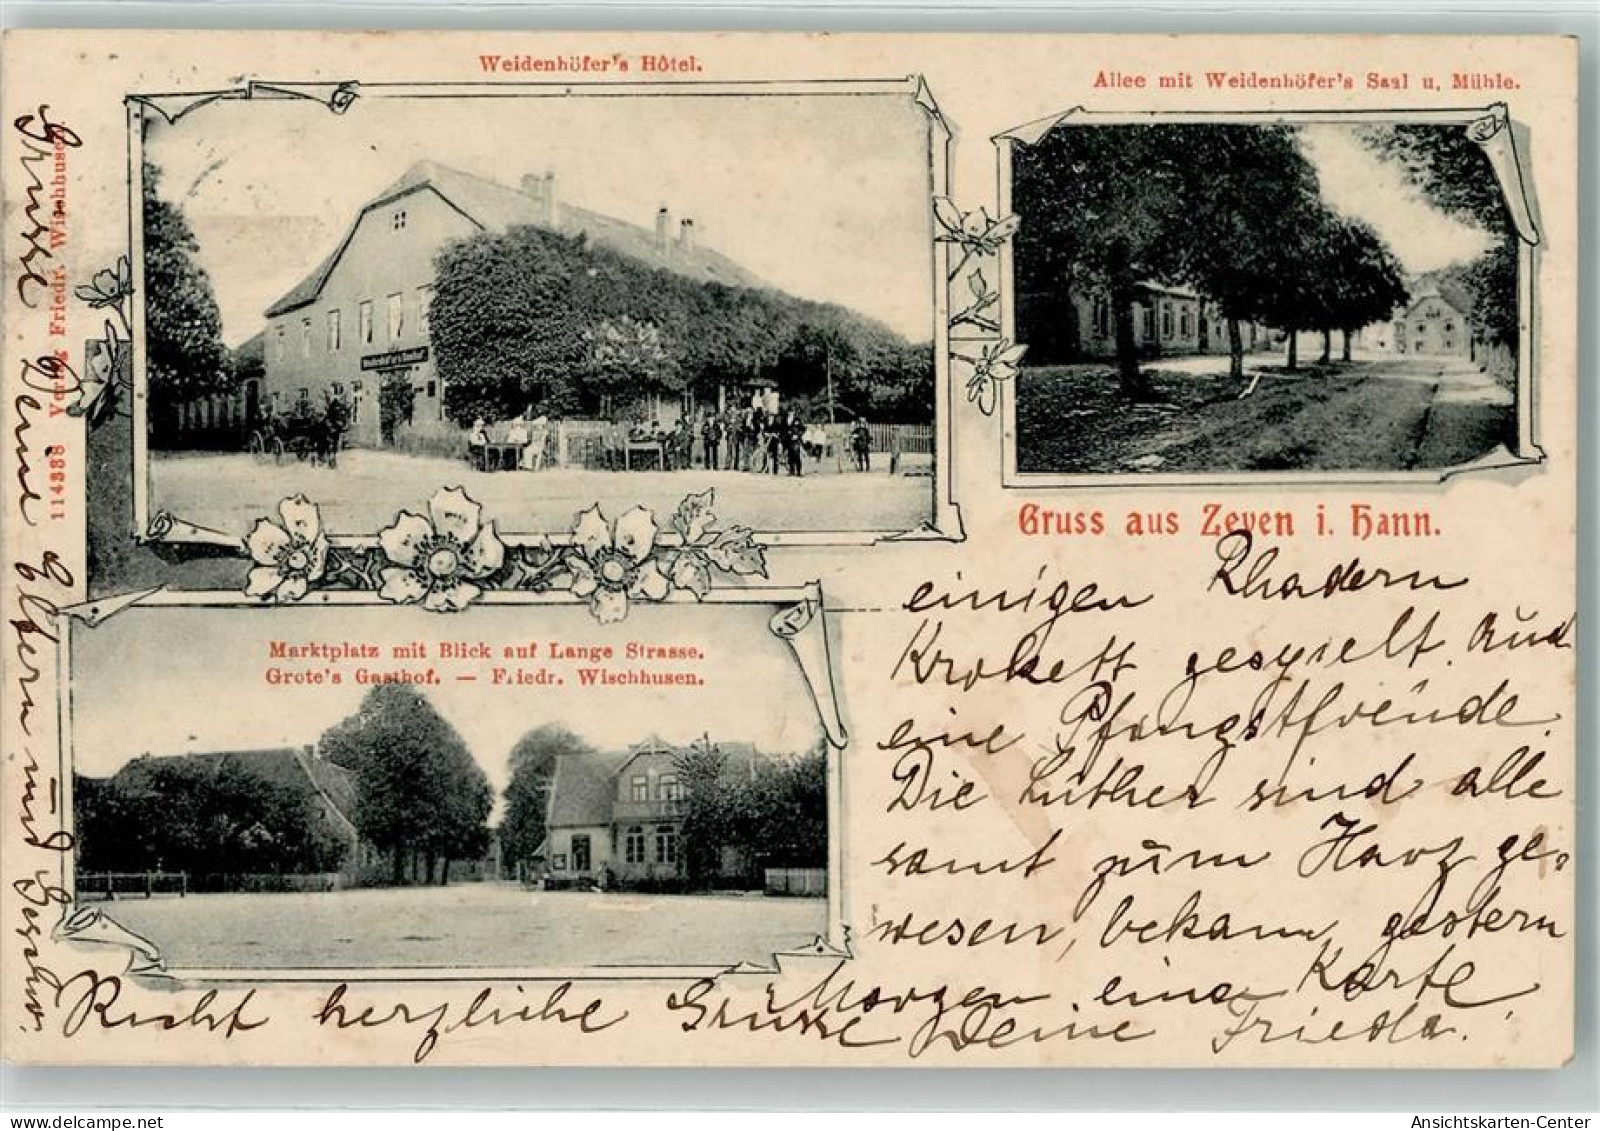 Weidenhöfer's Hôtel.
Allee mit Weidenhöfer's Saal u. Mühle.
114338 Verlag Friedr. Wischhusen.
Gruss aus Zeven i. Hann.
Marktplatz mit Blick auf Lange Strasse.
Grote's Gasthof. — Friedr. Wischhusen.
einigen Rhadern
Krokett gespielt. Aud
eine Pfongstfreude.
Die Lüther sind alle
samt zum Harz ge-
wesen, bekam gestern
Morgen eine Karte
Recht herzliche Grüsse Deine Frieda.
Grüsse Deine Eltern und Geschw.
Ansichtskarten-Center